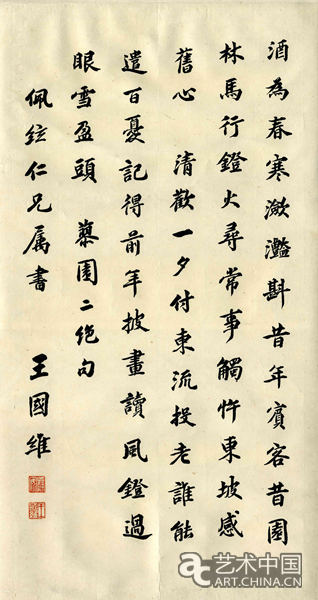 酒為春寒潋灩斟昔年賓客昔園
林馬行鐙火尋常事觸忤東坡感
舊心 清歡一夕付東流投老誰能
遣百憂記得前年披畫讀風鐙過
眼雪盈頭 園二绝句
佩紘仁兄属書 王國維
艺术中国
ART.CHINA.CN